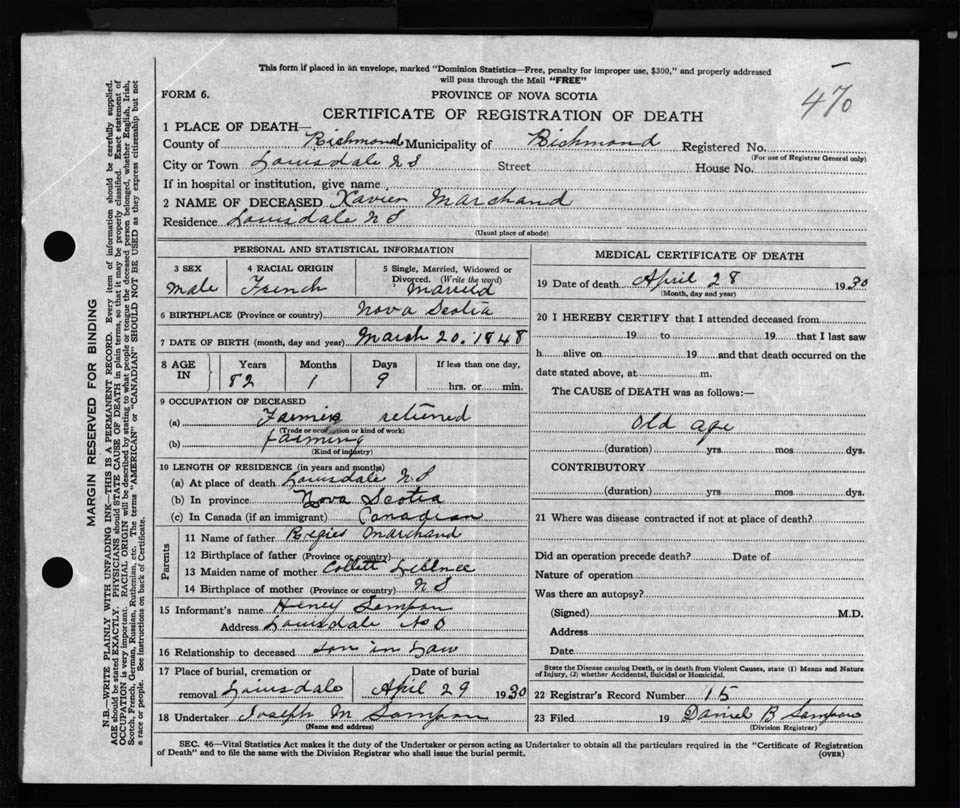 This form if placed in an envelope, marked "Dominion Statistics—Free, penalty for improper use, $300," and properly addressed
will pass through the Mail "FREE"
470
FORM 6.
PROVINCE OF NOVA SCOTIA
CERTIFICATE OF REGISTRATION OF DEATH
1 PLACE OF DEATH—
County of Richmond Municipality of Richmond Registered No.
(For use of Registrar General only)
City or Town Louisdale N S Street House No.
If in hospital or institution, give name
2 NAME OF DECEASED Xavier Marchand
Residence Louisdale N S
(Usual place of abode)
PERSONAL AND STATISTICAL INFORMATION
3 SEX 4 RACIAL ORIGIN 5 Single, Married, Widowed or
Divorced. (Write the word)
Male French Married
6 BIRTHPLACE (Province or country) Nova Scotia
7 DATE OF BIRTH (month, day and year) March 20. 1848
8 AGE IN Years Months Days If less than one day,
82 1 9 hrs. or min.
9 OCCUPATION OF DECEASED
(a) retired
(Trade or occupation or kind of work)
(b) farming
(Kind of industry)
10 LENGTH OF RESIDENCE (in years and months)
(a) At place of death Louisdale N S
(b) In province Nova Scotia
(c) In Canada (if an immigrant) Canadian
Parents
11 Name of father Regies Marchand
12 Birthplace of father (Province or country)
13 Maiden name of mother Collett
14 Birthplace of mother (Province or country) N S
15 Informant's name Henry Sampson
Address Louisdale N S
16 Relationship to deceased son in Law
17 Place of burial, cremation or Date of burial
removal Louisdale April 29 1930
18 Undertaker Joseph M Sampson
(Name and address)
MEDICAL CERTIFICATE OF DEATH
19 Date of death April 28 1930
(Month, day and year)
20 I HEREBY CERTIFY that I attended deceased from
19 to 19 that I last saw
h alive on 19 and that death occurred on the
date stated above, at m.
The CAUSE of DEATH was as follows:—
Old age
(duration) yrs mos dys.
CONTRIBUTORY
(duration) yrs mos dys.
21 Where was disease contracted if not at place of death?
Did an operation precede death? Date of
Nature of operation
Was there an autopsy?
(Signed) M.D.
Address
Date
State the Disease causing Death, or in death from Violent Causes, state (1) Means and Nature
of Injury, (2) whether Accidental, Suicidal or Homicidal.
22 Registrar's Record Number 15
23 Filed 19 Daniel B Sampson
(Division Registrar)
SEC. 46—Vital Statistics Act makes it the duty of the Undertaker or person acting as Undertaker to obtain all the particulars required in the "Certificate of Registration
of Death" and to file the same with the Division Registrar who shall issue the burial permit.
(OVER)
MARGIN RESERVED FOR BINDING
N.B.—WRITE PLAINLY WITH UNFADING INK—THIS IS A PERMANENT RECORD. Every item of information should be carefully supplied.
AGE should be stated EXACTLY. PHYSICIANS should STATE CAUSE OF DEATH in plain terms, so that it may be properly classified. Exact statement of
OCCUPATION is very important. RACIAL ORIGIN will be described by stating to what people or tongue the deceased person belonged, whether English, Irish,
Scotch, French, German, Russian, Ruthenian, etc. The terms "AMERICAN" or "CANADIAN" SHOULD NOT BE USED as they express citizenship but not
a race or people. See instructions on back of Certificate.